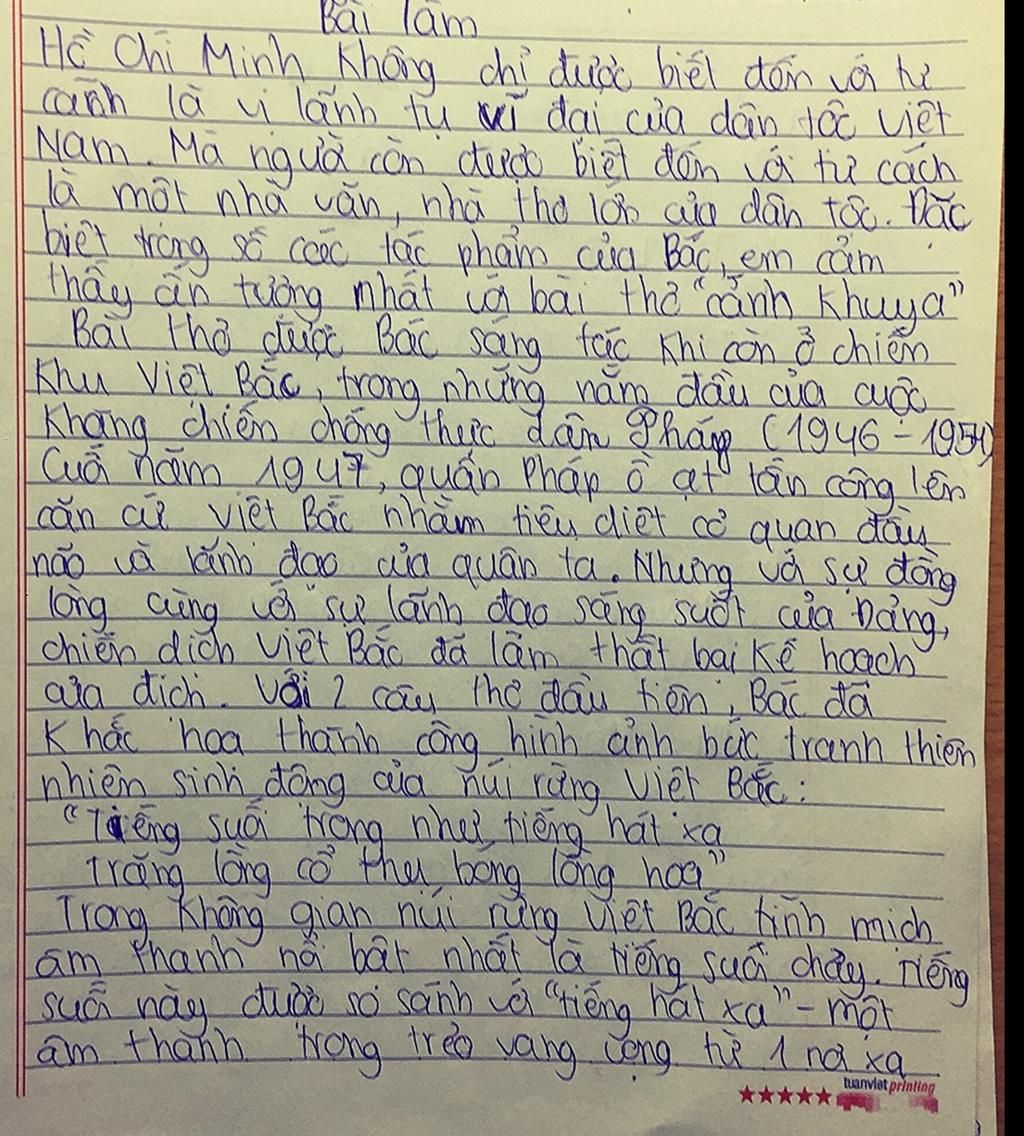 Bài làm
Hồ Chí Minh không chỉ được biết đến với tư
cách là vị lãnh tụ vĩ đại của dân tộc Việt
Nam. Mà người còn được biết đến với tư cách
là một nhà văn, nhà thơ lớn của dân tộc. Đặc
biệt trong số các tác phẩm của Bác, em cảm
thấy ấn tượng nhất với bài thơ "cảnh khuya"
Bài thơ được Bác sáng tác khi còn ở chiến
khu Việt Bắc, trong những năm đầu của cuộc
kháng chiến chống thực dân Pháp (1946 - 1954)
Cuối năm 1947, quân Pháp ồ ạt tấn công lên
căn cứ Việt Bắc nhằm tiêu diệt cơ quan đầu
não và lãnh đạo của quân ta. Nhưng với sự đồng
lòng cùng với sự lãnh đạo sáng suốt của Đảng,
chiến dịch Việt Bắc đã làm thất bại kế hoạch
của địch. Với 2 câu thơ đầu tiên, Bác đã
khắc họa thành công hình ảnh bức tranh thiên
nhiên sinh động của núi rừng Việt Bắc:
"Tiếng suối trong như tiếng hát xa
Trăng lồng cổ thụ bóng lồng hoa"
Trong không gian núi rừng Việt Bắc tĩnh mịch
âm thanh nổi bật nhất là tiếng suối chảy. Tiếng
suối này được so sánh với "tiếng hát xa" - một
âm thanh trong trẻo vang vọng từ 1 nơi xa
tuanviet printing